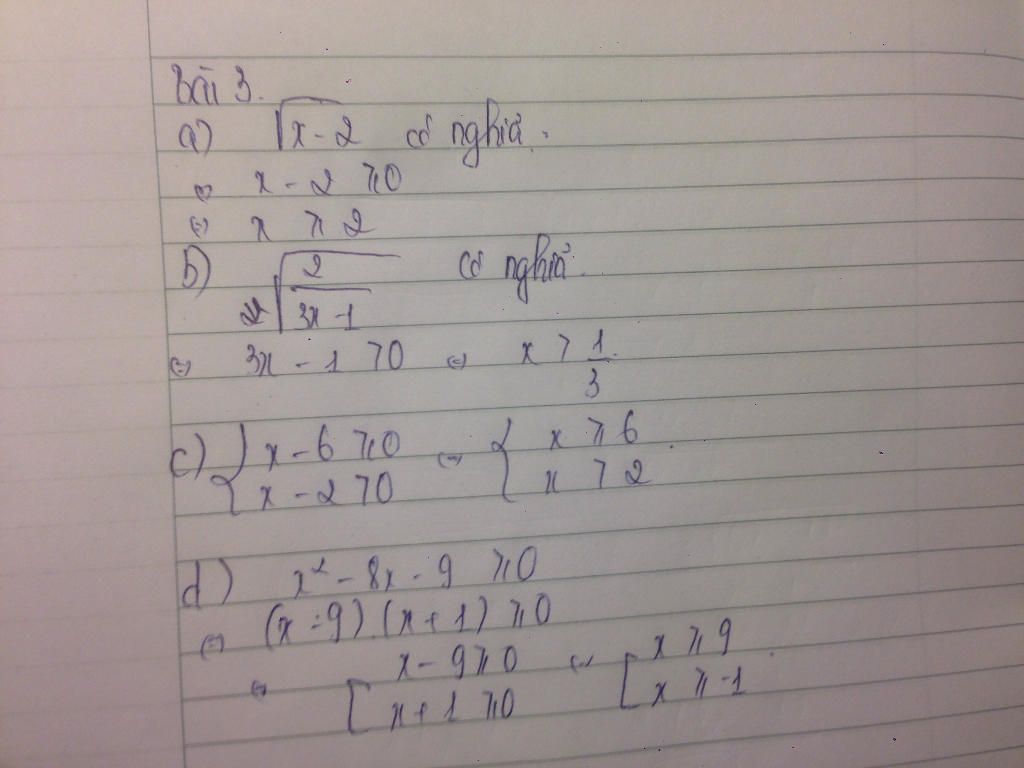 Bài 3.
a) √(x - 2) có nghĩa.
⇔ x - 2 ≥ 0
⇔ x ≥ 2
b) √(2/(3x - 1)) có nghĩa.
⇔ 3x - 1 > 0 ⇔ x > 1/3.
c) { x - 6 ≥ 0 ⇔ { x ≥ 6.
x - 2 > 0 x > 2
d) x² - 8x - 9 ≥ 0
⇔ (x - 9).(x + 1) ≥ 0
⇔ [ x - 9 ≥ 0 ⇔ [ x ≥ 9.
x + 1 ≥ 0 x ≥ -1